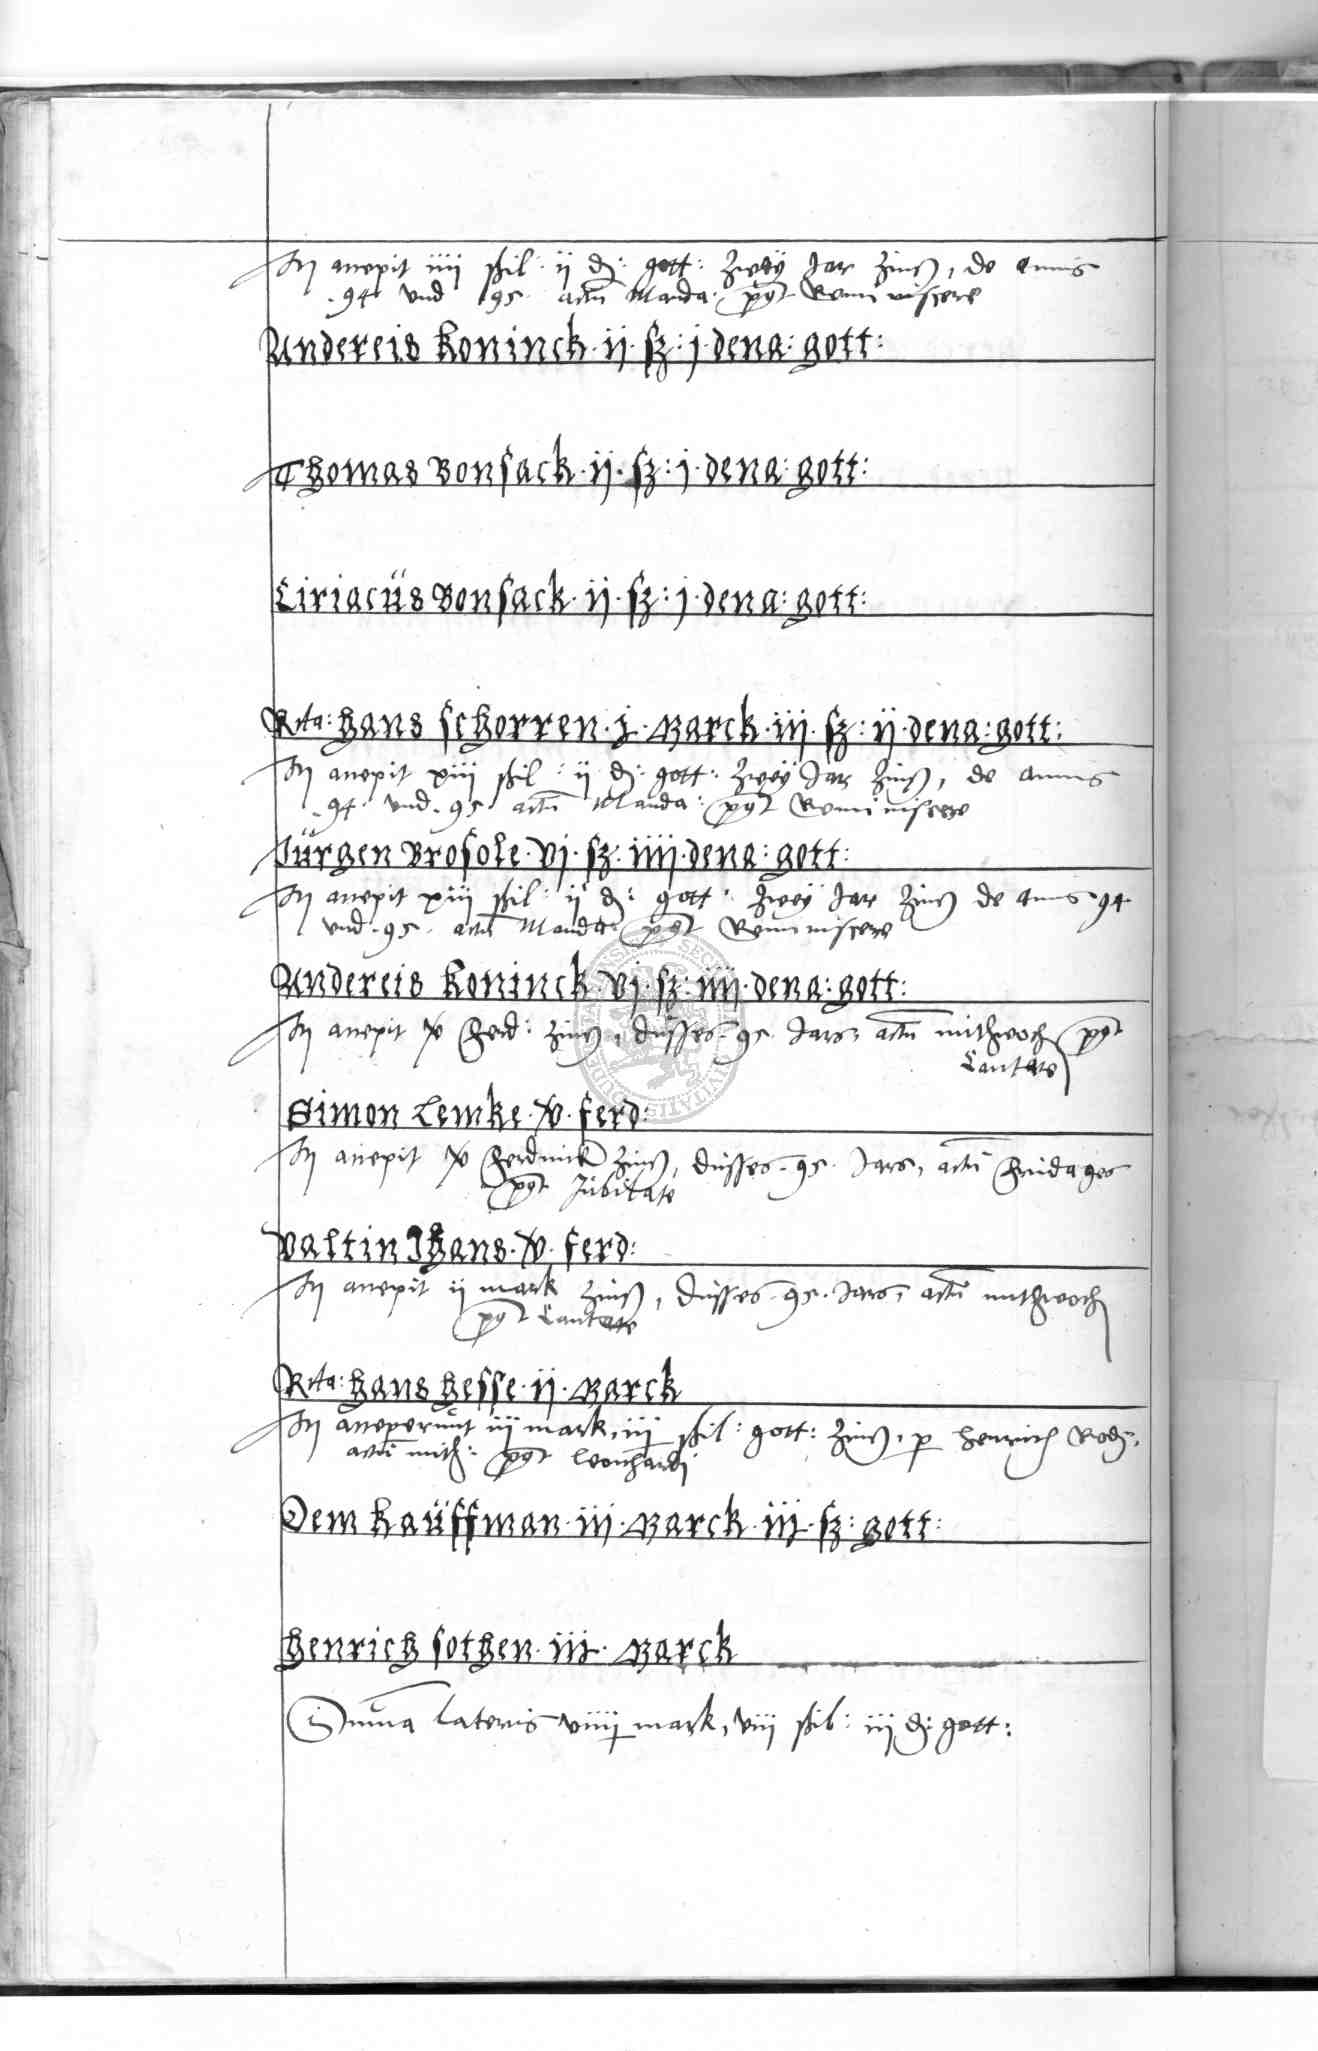 In accepit iiij shil: ij d: gott: zwey Jar zinß, de annis
.94. vnd 95. actu Manda: post Reminiscere
Andereis Koninck. ij. sz: j. dena: gott:
Thomas Bonsack. ij. sz: j. dena: gott:
Ciriacüs Bonsack. ij. sz: j. dena: gott:
Rta: Hans schorren. j. Marck. iij. sz: ij. dena: gott:
In accepit xiij shil: ij d: gott: zwey Jar zinß, de annis
.94. vnd. 95. actu Manda: post Reminiscere
Jürgen Brosole. vj. sz. iiij. dena: gott:
In accepit xiij shil: ij d: gott: zwey Jar zinß de annis 94.
vnd. 95. actu Manda: post Reminiscere
Andereis Koninck. vj. sz: iiij. dena: gott:
In accepit v ferd: zinß, düsses. 95. Jars, actu mithwoch post
Cantate
Simon Lemke. v. ferd:
In accepit v ferdinck zinß, düsses. 95. Jars, actu fridages
post Jubilate
Valtin Jhans. v. ferd:
In accepit ij mark zinß, düsses. 95. Jars, actu mithwoch
post Cantate
Rta: Hans Hesse. ij. Marck
In acceperunt iij mark, iij shil: gott: zinß, p henrich
actu mith: post Leonhardi
Dem Kaüffman. iij. Marck. iij. sz: gott:
Henrich sothen. iij. Marck
Summa lateris viiij mark, viij shil: iij d: gott: